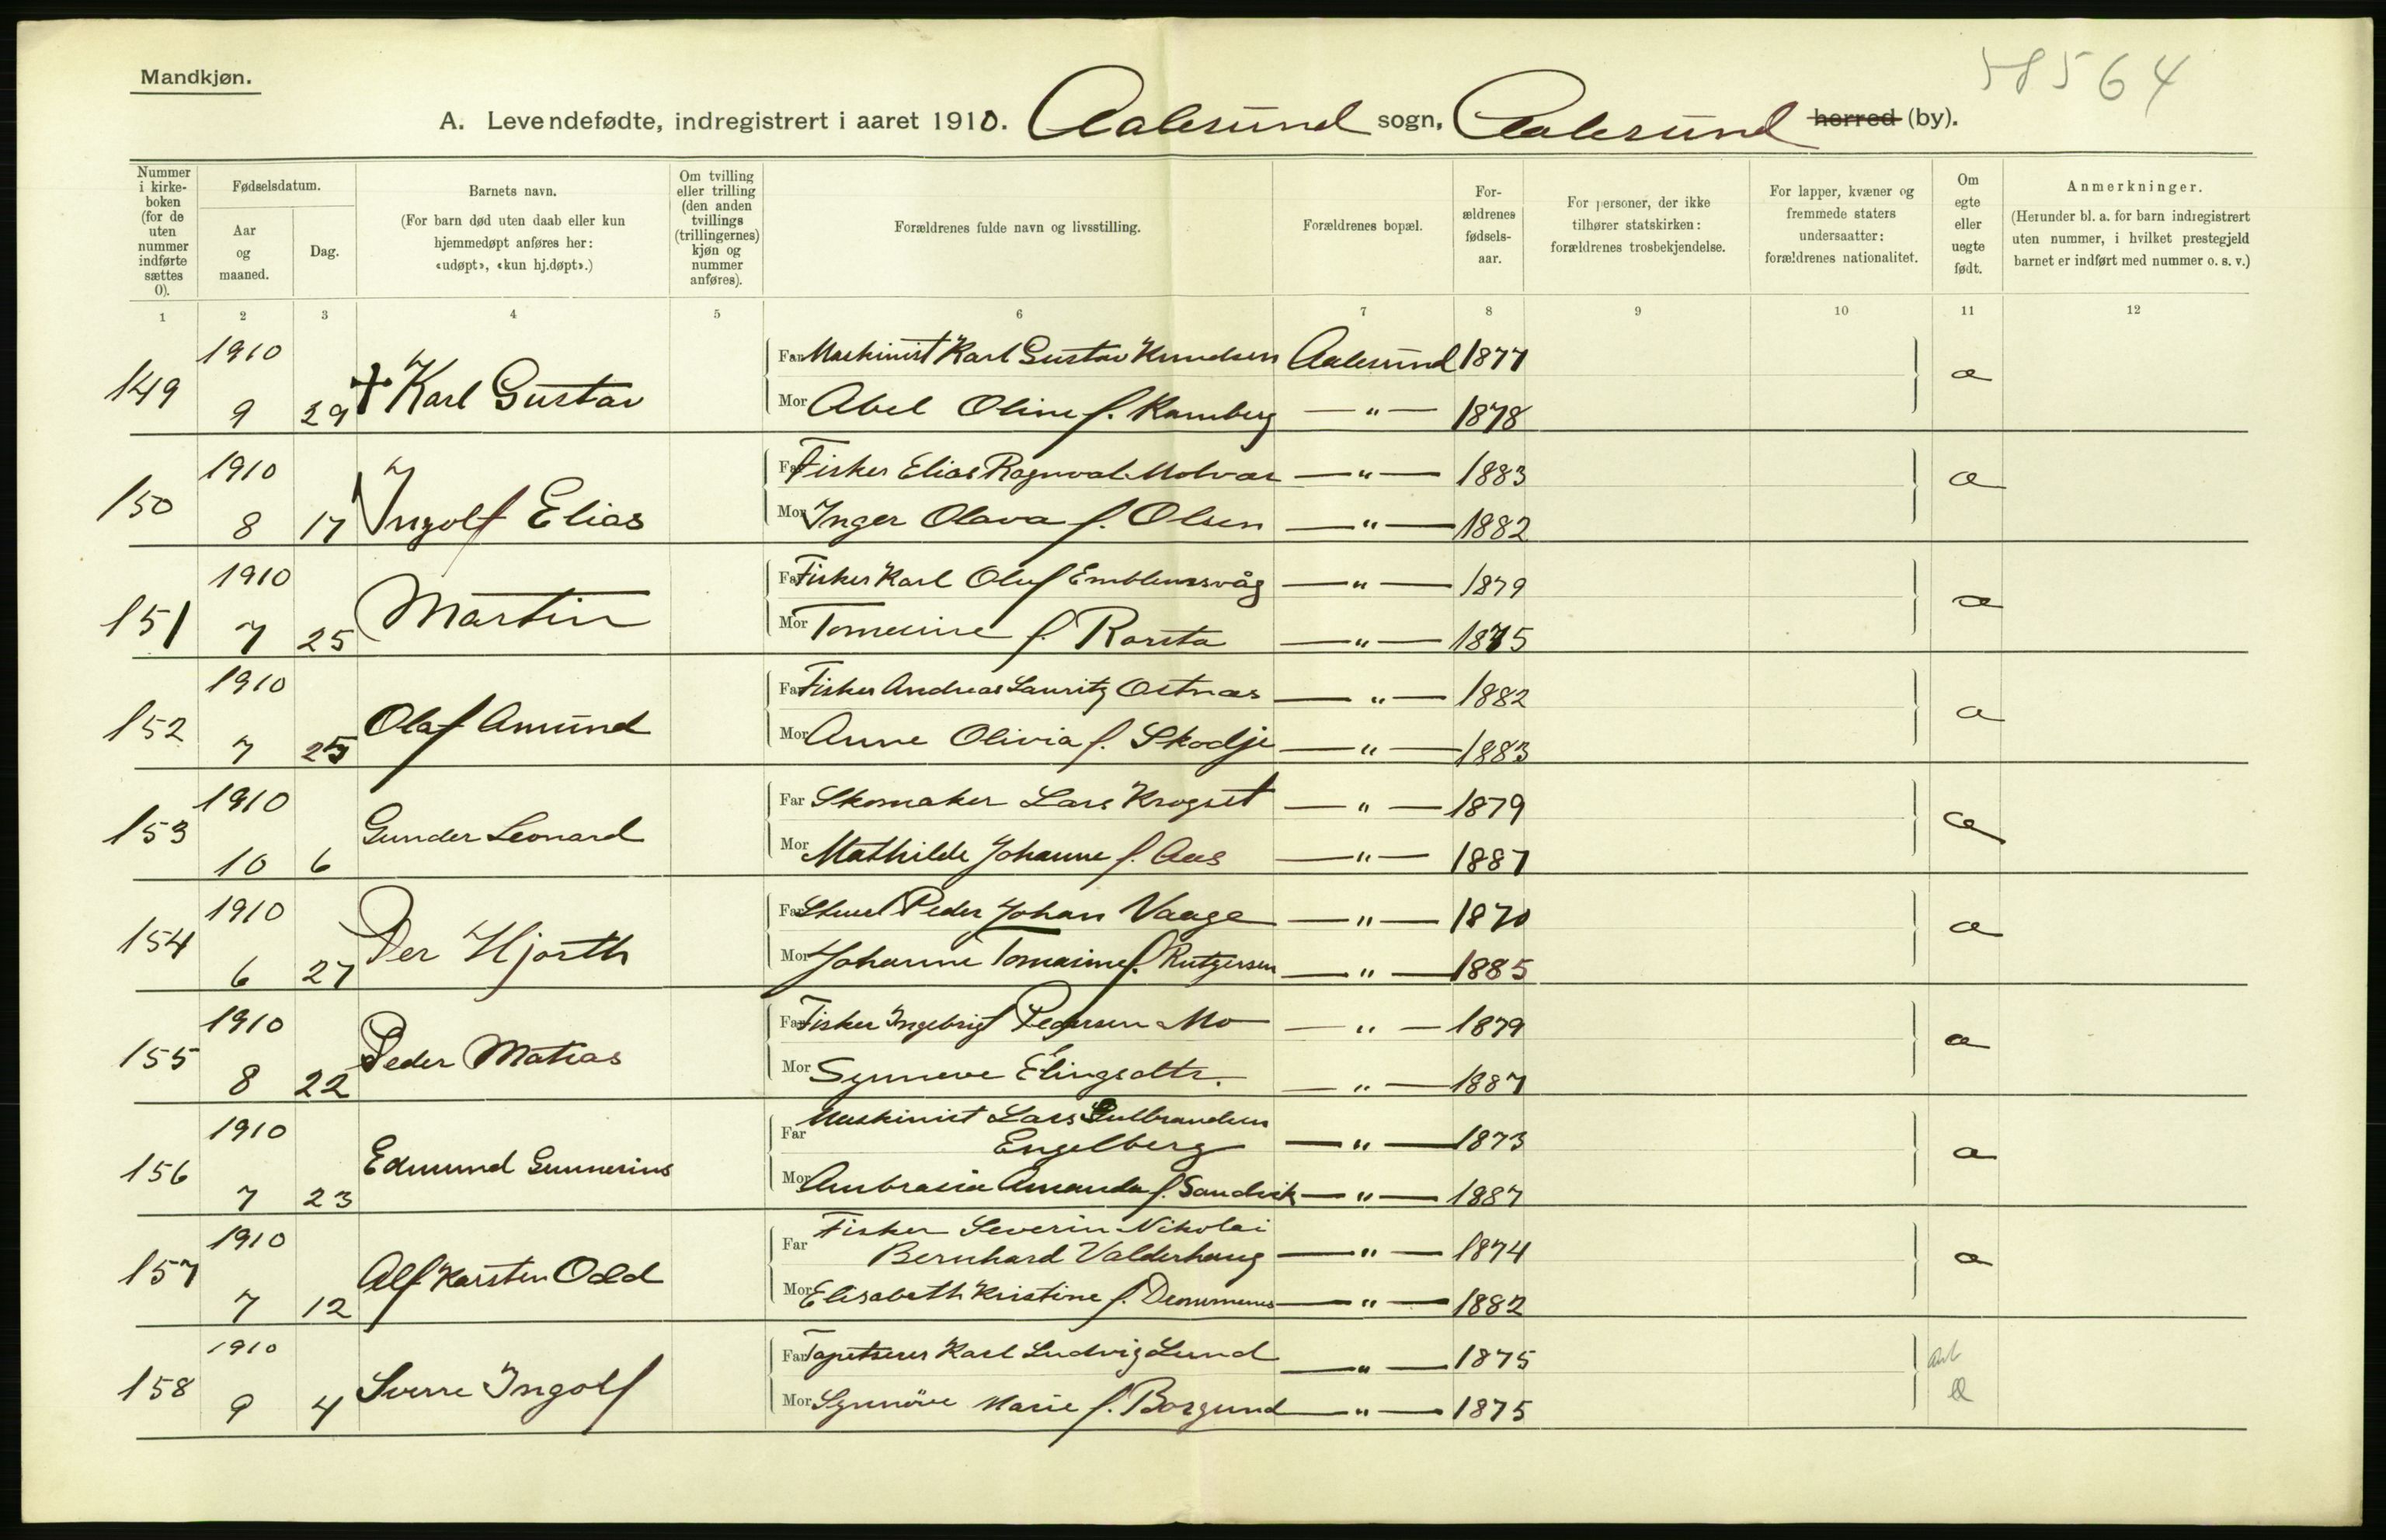 58564
Mandkjøn.
A. Levendefødte, indregistrert i aaret 1910. Aalesund sogn, Aalesund herred (by).
Nummer i kirke-boken (for de uten nummer indførte sættes 0).
Fødselsdatum.
Aar og maaned.
Dag.
Barnets navn.
(For barn død uten daab eller kun hjemmedøpt anføres her: «udøpt», «kun hj.døpt».)
Om tvilling eller trilling (den anden tvillings (trillingernes) kjøn og nummer anføres).
Forældrenes fulde navn og livsstilling.
Forældrenes bopæl.
For-ældrenes fødsels-aar.
For personer, der ikke tilhører statskirken: forældrenes trosbekjendelse.
For lapper, kvæner og fremmede staters undersaatter: forældrenes nationalitet.
Om egte eller uegte født.
Anmerkninger.
(Herunder bl. a. for barn indregistrert uten nummer, i hvilket prestegjeld barnet er indført med nummer o. s. v.)
1 2 3 4 5 6 7 8 9 10 11 12
1910 Far Maskinist Karl Gustav Knudsen Aalesund 1877
149 9 29 + Karl Gustav Mor Abel Oline f. Ramberg — " — 1878 æ
1910 Far Fisker Elias Ragnval Molvær — " — 1883
150 8 17 Ingolf Elias Mor Inger Olava f. Olsen — " — 1882 æ
1910 Far Fisker Karl Oluf Emblemsvåg — " — 1879
151 7 25 Martin Mor f. Rorsta — " — 1875 æ
1910 Far Fisker Andreas Lauritz — " — 1882
152 7 25 Olaf Amund Mor Anne Olivia f. Skodje — " — 1883 æ
1910 Far Skomaker Lars Krogset — " — 1879
153 10 6 Gunder Leonard Mor Mathilde Johanne f. Aas — " — 1887 æ
1910 Far Peder Johan Vaage — " — 1870
154 6 27 Per Hjorth Mor Johanne Tomasine f. Rutgersen — " — 1885 æ
1910 Far Fisker Ingebrigt Pedersen Mo — " — 1879
155 8 22 Peder Matias Mor Synneve Elingsdtr. — " — 1887 æ
1910 Far Maskinist Lars Gulbrandsen
Engelberg — " — 1873
156 7 23 Edmund Gunnerius Mor Ambrosia Amanda f. Sandvik — " — 1887 æ
1910 Far Fisker Severin Nikolai
Bernhard Valderhaug — " — 1874
157 7 12 Alf Karsten Odd Mor Elisabeth Kristine f. — " — 1882 æ
1910 Far Tapetserer Karl Ludvig Lund — " — 1875
158 9 4 Sverre Ingolf Mor Synnöve Marie f. Borgund — " — 1875 æ